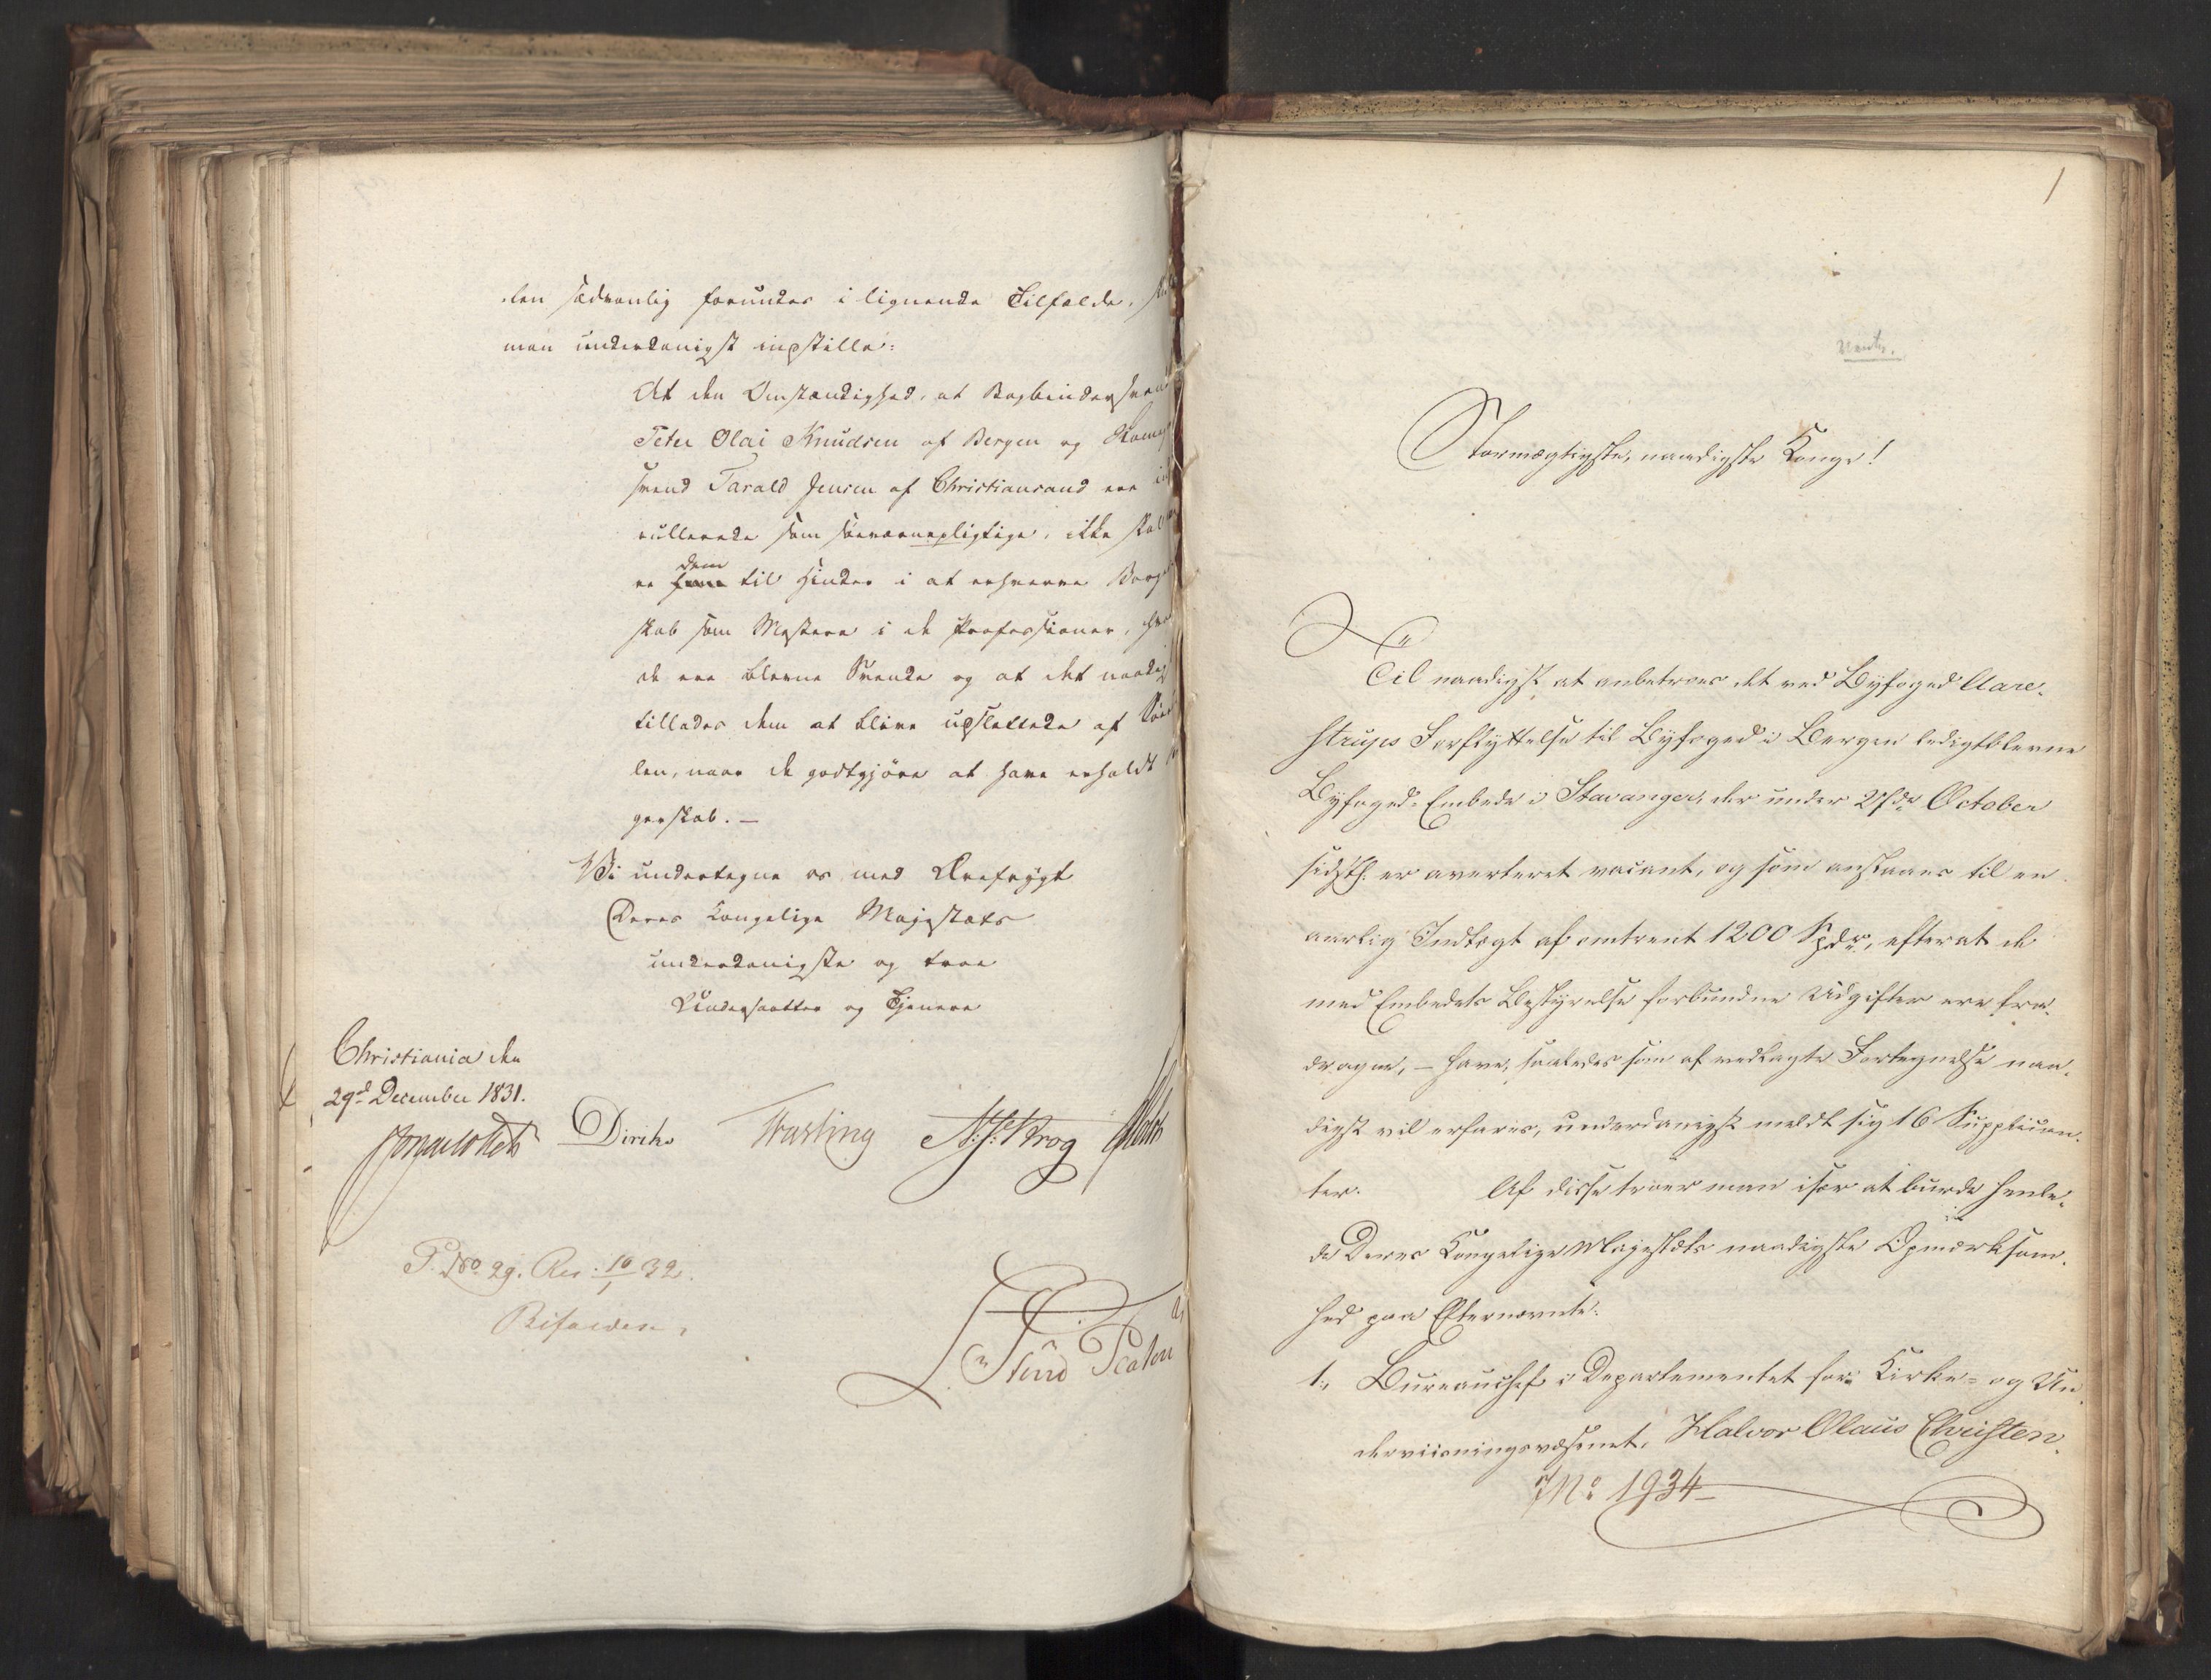 den sædvanlig forundes i lignende Tilfælde,
man underdanigst indstille:
At den Omstændighed, at Bogbindersvend
Peter Olai Knudsen af Bergen og
svend Tarald Jensen af Christiansand ere
rullerede som søeværnepligtige, ikke skal
dem
til Hinder i at erhverve Borger
skab som Mestere i de Professioner,
de ere blevne Svende og at det naadigst
tillades dem at blive udslettede af
len, naar de godtgjøre at have erholdt
gerskab. —
Vi undertegne os med Ærefrygt
Deres Kongelige Majestæts
underdanigste og troe
Undersaatter og Tjenere
Christiania den
29d December 1831.
Jonas Collett Diriks Fasting N. J. Krog
P. No 29. Res: 10/1 32.
Bifaldes.
1
Stormægtigste, naadigste Konge!
Til naadigst at anbetroes det ved Byfoged Aare-
strups Forflyttelse til Byfoged i Bergen ledigtblevne
Byfoged-Embede i Stavanger, der under October
sidstl. er averteret vacant, og som ansaaes til en
aarlig Indtægt af omtrent 1200 Spdr, efterat de
med Embedets Bestyrelse forbundne Udgifter ere fra-
dragne, — have, saaledes som af vedlagte Fortegnelse naa-
digst vil erfares, underdanigst meldt sig 16 Supplican-
ter. Af disse troer man især at burde henle-
de Deres Kongelige Majestæts naadigste Opmærksom-
hed paa Efternævnte:
1., Bureauchef i Departementet for Kirke- og Un-
derviisningsvæsenet, Halvor Olaus Christen-
No 1934